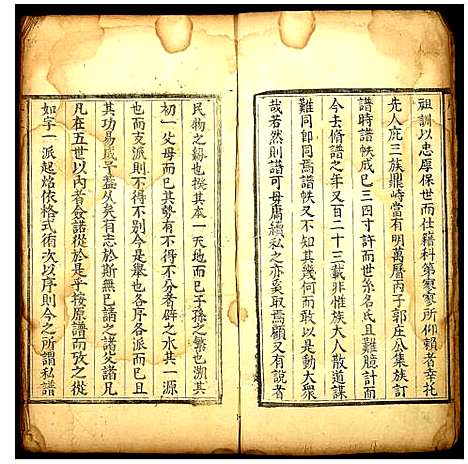 祖訓以忠厚保世而仕籍科第寥寥所仰賴者幸托
先人庇三族鼎峙當有明萬曆丙子郭庄公集族訂
譜時譜帙成已三四寸許而世系名氏且難臆計而
今去脩譜之年又百二十三載非惟族大人散道謀
難同即同焉譜帙又不知其幾何而敢以是動大眾
哉若然則譜可毋庸續私之亦奚取焉顧又有說者
民物之紛也揆其本一天地而已子孫之繁也溯其
初一父母而已其勢有不得不分者辟之水其一源
也而支派則不得不别今是舉也各序各派而已且
其功易成予益从矣有志於斯無已請之諸父諸兄
凡在五世以内者僉諾從於是乎按原譜而攷之從
如字一派起烙依格式術次以序則今之所謂私譜